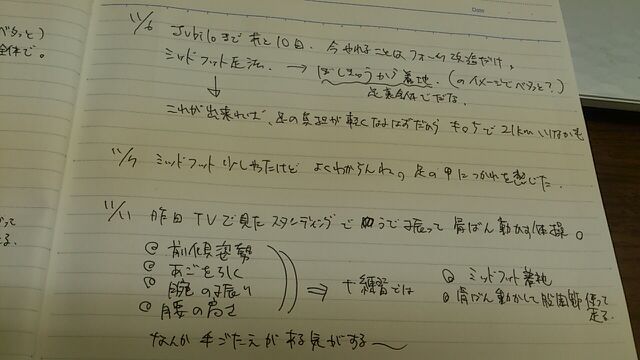 べタッと)
全体で。
Date
11/6 Jubiloまであと10日. 今やれることは、フォーム改造だけ。
ミッドフット走法. → ぼしきゅうから着地. (のイメージでベタッと?)
足裏全体でだな.
↓
これが出来れば、足の負担が軽くなるはずだから キロ5で21kmいけるかも
11/7 ミッドフット少しやったけど よくわからんね。足の甲につかれを感じた.
11/11 昨日TVで見たスタンディングで うで振って骨ばん動かす体操。
① 前傾姿勢
② あごを引く
③ 腕の振り
④ 腰の高さ
⇒ +練習では
① ミッドフット着地
② 骨ばん動かして股関節使って
走る.
なんか手ごたえがある気がするー